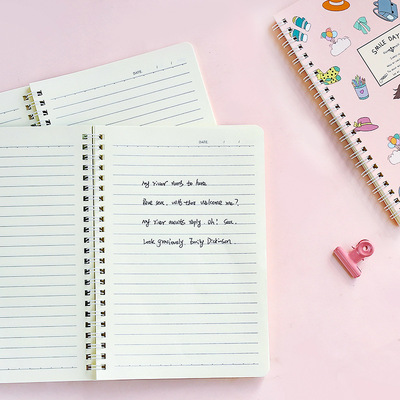 DATE
DATE
My river runs to
blue sea, wilt thou welcome me?
My river awaits reply. Oh! Sea,
Look graciously. Emily Dickinson.
SMILE DAY